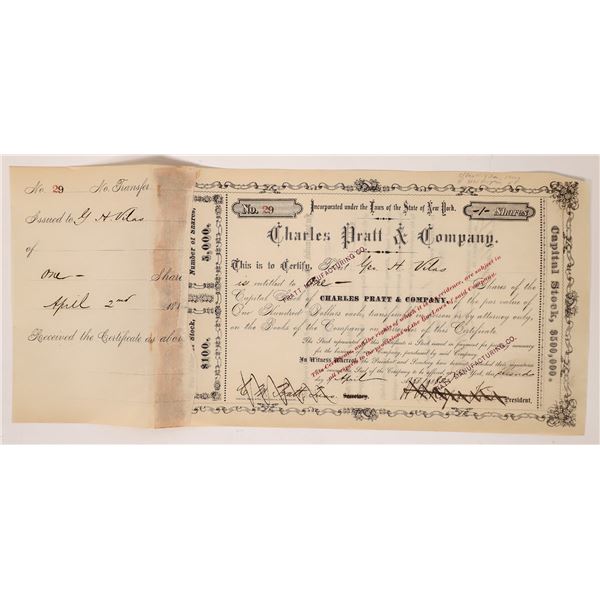 No. 29 No. Transfer
Issued to G H Vilas
of
one — Share
April 2nd 18
Received the Certificate as above
Number of Shares, 5,000.
Stock, $100.
No. 29
Incorporated under the Laws of the State of New York.
-1- Shares
Charles Pratt & Company.
This is to Certify, That Geo H Vilas
is entitled to One — Shares of the
Capital Stock of CHARLES PRATT & COMPANY, of the par value of
One Hundred Dollars each, transferable in person or by attorney only,
on the Books of the Company on surrender of this Certificate.
The Stock represented
issued Stock issued in payment for
for the business of the Company, purchased by said Company.
In Witness Whereof, The President and Secretary have
the Seal of the Company to be affixed
York, this second
day of April
C M Pratt, Secretary.
President.
PRATT MANUFACTURING CO.
This Certificate, and the rights of which it is the evidence, are subject in
all respects to the provisions of the Bye-Laws of said Company.
PRATT MANUFACTURING CO.
Capital Stock, $500,000.